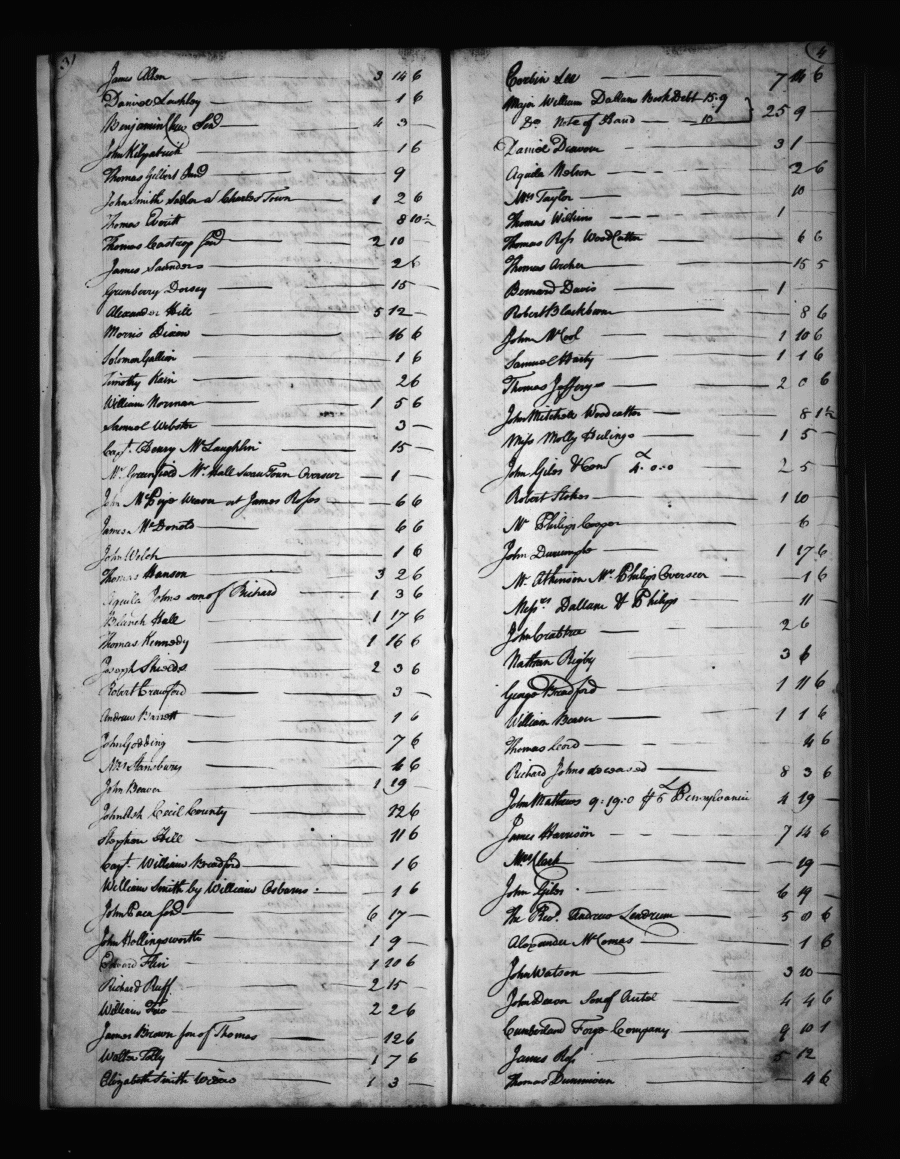 3
James Allen 3 14 6
Daniel Lashley 1 6
Benjamin 4 3
John Kilpatrick 1 6
Thomas Gilbert 9
John Smith Sadler at Charles Town 1 2 6
Thomas Everitt 8 10½
Thomas 2 10
James Saunders 2 6
Greenberry Dorsey 15
Alexander Hill 5 12
Morris Dixon 16 6
Solomon Gallion 1 6
Timothy Kain 2 6
William Norman 1 5 6
Samuel Webster 3
Capt. Henry McLaughlin 15
Mr Greenfield Mr Hall Swan Town Overseer 1
John Weaver at James Ross 6 6
James McDonots 6 6
John Welch 1 6
Thomas Hanson 3 2 6
Aquila Johns son of Richard 1 3 6
Blanch Hall 1 17 6
Thomas Kennedy 1 16 6
Joseph Shields 2 3 6
Robert Crawford 3
Andrew Barrett 1 6
John Godding 7 6
Mrs Stansbury 6 6
John Beaver 1 19
John Ash Cecil County 12 6
Stephen Hill 11 6
Capt. William Bradford 1 6
William Smith by William Osbourns 1 6
John Paca 6 17
John Hollingsworth 1 9
Edward Flin 1 10 6
Richard Ruff 2 15
William 2 2 6
James Brown son of Thomas 12 6
Walter Tolly 1 7 6
Elizabeth Smith Widow 1 3
4
Corbin Lee 7 14 6
Major William Dallam Book Debt 15.9
Do Note of Hand 10 } 25 9
Daniel Deavour 3 1
Aquila Nelson 2 6
Mrs Taylor 10
Thomas Wilkins 1
Thomas Ross Wood Cutter 6 6
Thomas Archer 15 5
Bernard Davis 1
Robert Blackburn 8 6
John McCool 1 10 6
Samuel Harty 1 1 6
Thomas Jefferys 2 0 6
John Mitchell Woodcutter 8 1½
Miss Molly Hulings 1 5
John Giles 4.0.0 2 5
Robert Stokes 1 10
Mr Philips Cooper 6
John 1 17 6
Mr Atkinson Mr Philips Overseer 1 6
Messrs Dallam & Philips 11
John Crabtree 2 6
Nathan Rigby 3 6
George Bradford 1 11 6
William Beaver 1 1 6
Thomas 4 6
Richard Johns deceased 8 3 6
John Mathews 9.19.0 Pennsylvania 4 19
James Harrison 7 14 6
Mrs Clark 19
John Giles 6 19
The Revd. Andrew Lendrum 5 0 6
Alexander McComas 1 6
John Watson 3 10
John Deaver Son of Antel 4 4 6
Cumberland Forge Company 9 10 1
James Ross 5 12
Thomas 4 6